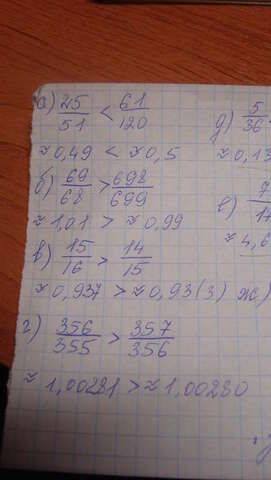 а) 25/51 < 61/120
≈ 0,49 < ≈ 0,5
б) 69/68 > 698/699
≈ 1,01 > ≈ 0,99
в) 15/16 > 14/15
≈ 0,937 > ≈ 0,93(3)
г) 356/355 > 357/356
≈ 1,00281 > ≈ 1,00280
д) 5/36
≈ 0,13
е)
≈ 4,6
ж)